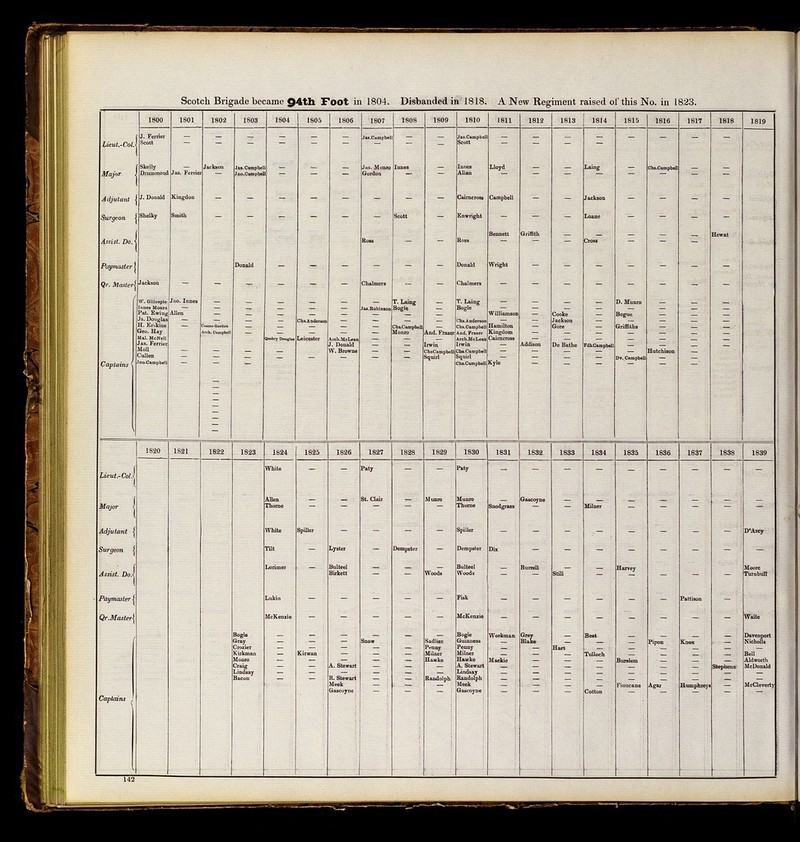 Scotch Brigade became 94th Foot in 1804. Disbanded in 1818. A New Regiment raised of this No. in 1823.
1800 1801 1802 1803 1804 1805 1806 1807 1808 1809 1810 1811 1812 1813 1814 1815 1816 1817 1818 1819
Lieut.-Col. J. Ferrier — — — — — — Jas.Campbell — — Jas.Campbell — — — — — — — —
Scott — — — — — — — — — Scott — — — — — — — —
Major Skelly — Jackson Jas. Campbell — — — Jno. Monro Innes — Innes Lloyd — — Laing — Chs.Campbell — —
Drummond Jas. Ferrier — Jno.Campbell — — — Gordon — — Allan — — — — — — — —
Adjutant J. Donald Kingdon — — — — — — — — Cairncross Campbell — — Jackson — — — —
Surgeon Shelky Smith — — — — — — Scott — Enwright — — — Loane — — — —
Bennett Griffith — — — — — Hewat
Assist. Do. Ross — — Ross — — — Cross — — — —
Paymaster Donald — — — — — — Donald Wright — — — — — — —
Qr. Master Jackson — — — — — — Chalmers — — Chalmers — — — — — — — —
W. Gillespie Jno. Innes — — — — — — T. Laing — T. Laing — — — — D. Munro — — —
Innes Monro — — — — — — Jas.Robinson Bogle — Bogle
Pat. Ewing Allen — — — — — — — — — Williamson — Cooke — Bogue — — —
Js. Douglas — — — — Chs.Anderson — — — — Chs.Anderson — — Jackson — — — — —
H. Erskine — Cosmo Gordon — — — — — Chs.Campbell — Chs.Campbell Hamilton — Gore — Griffiths — — —
Geo. Hay — Arch. Campbell — — — — — Monro And. Fraser And. Fraser Kingdom
Mal. McNeil — — — Quebry Douglas Leicester Arch.McLean — — — Arch.McLean Cairncross
Jas. Ferrier — — — — — J. Donald — — Irwin Irwin — Addison De Bathe Fdk.Campbell — — — —
Moll — — — — — W. Browne — — ChsCampbell Chs.Campbell — — — — — Hutchison — —
Cullen — — — — — — — — Squirl Squirl — — — — Dv. Campbell — — —
Captains Jno.Campbell Chs.Campbell Kyle — — — — — — —
1820 1821 1822 1823 1824 1825 1826 1827 1828 1829 1830 1831 1832 1833 1834 1835 1836 1837 1838 1839
Lieut.-Col. White — — Paty — — Paty — — — — — — — — —
Allen — — St. Clair — Munro Munro — Gascoyne — — — — — — —
Major Thorne — — — — — Thorne Snodgrass — — Milner — — — — —
Adjutant White Spiller — — — — Spiller — — — — — — — — D'Arcy
Surgeon Tilt — Lyster — Dempster — Dempster Dix — — — — — — — —
Lorimer — Bulteel — — — Bulteel — Burrell — — Harvey — — — Moore
Assist. Do. Birkett — — Woods Woods Still — — — — — Turnbull
Paymaster Lukin — — — — — Fisk — — — — — — Pattison — —
Qr.Master McKenzie — — — — — McKenzie — — — — — — — — Waite
Bogle — — — — — — Bogle Workman Grey — Best — — — — Davenport
Gray — — — Snow — Sadlier Guinness — Blake — — — Pipon Knox — Nicholls
Crozier — — — — — Penny Penny — — Hart — — — — — —
Kirkman — Kirwan — — — Milner Milner — — — Tulloch — — — — Bell
Monro — — — — — Hawke Hawke Mackie — — — Burslem — — — Aldworth
Craig — — A. Stewart — — — A. Stewart — — — — — — — Stephens McDonald
Lindsay — — — — — — Lindsay — — — — — — — — —
Bacon — — R. Stewart — — Randolph Randolph — — — — — — — — —
Meek — — — Meek — — — — Finucane Agar Humphreys — McCleverty
Gascoyne — — — Gascoyne — — — Cotton — — — — —
Captains
142